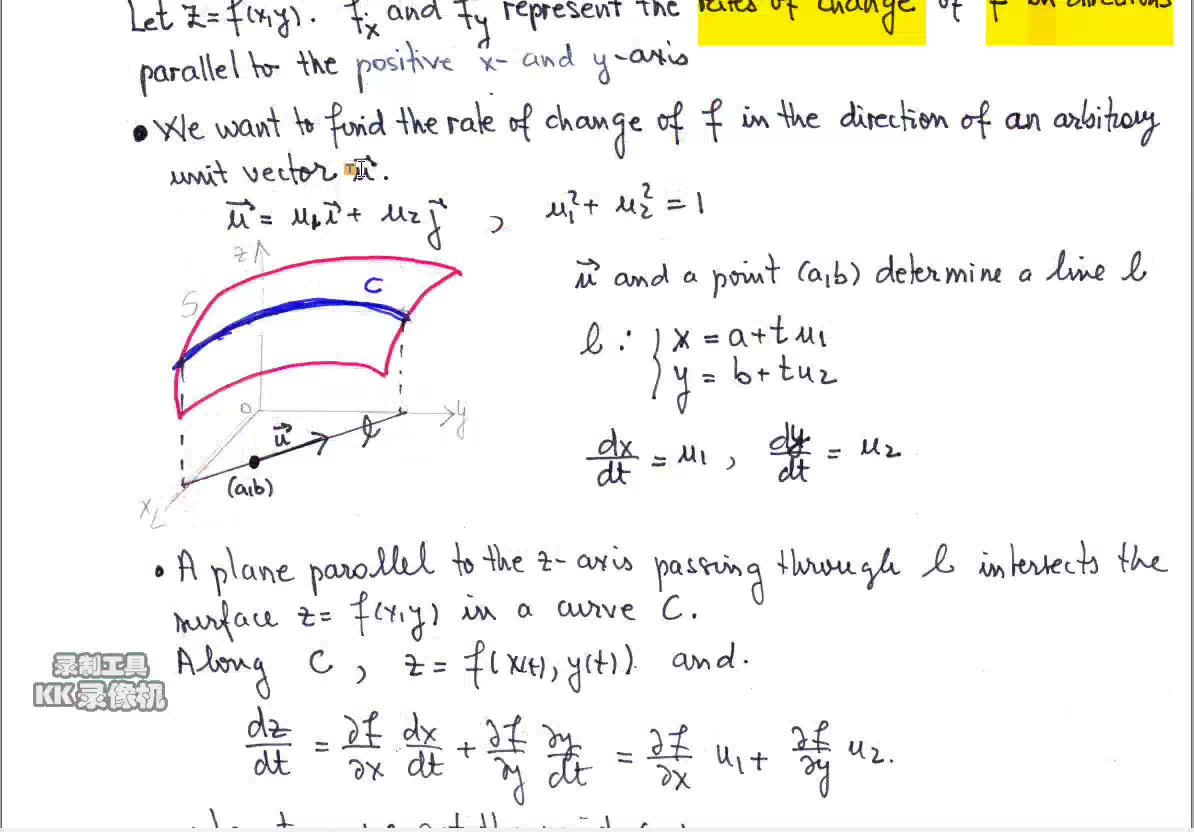 Let z = f(x,y). fx and fy represent the rates of change of f in directions
parallel to the positive x- and y-axis
• We want to find the rate of change of f in the direction of an arbitrary
unit vector u⃗.
u⃗ = u₁i⃗ + u₂j⃗ , u₁² + u₂² = 1
z
S
C
u⃗ and a point (a,b) determine a line l
l : { x = a + t u₁
y = b + t u₂
O
y
u⃗
l
(a,b)
x
dx/dt = u₁ , dy/dt = u₂
• A plane parallel to the z-axis passing through l intersects the
surface z = f(x,y) in a curve C.
Along C , z = f(x(t), y(t)) and.
录制工具
KK录像机
dz/dt = ∂f/∂x dx/dt + ∂f/∂y ∂y/dt = ∂f/∂x u₁ + ∂f/∂y u₂.